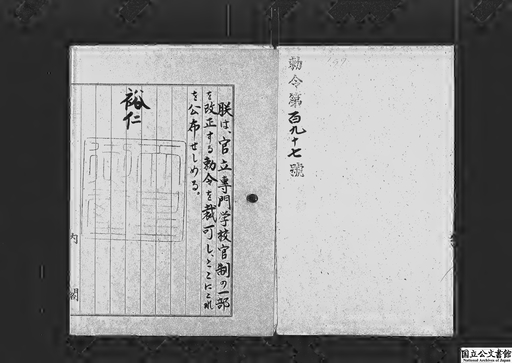 勅令第百九十七號
朕は、官立専門学校官制の一部
を改正する勅令を裁可し、ここにこれ
を公布せしめる。
裕仁
内閣
国立公文書館
National Archives of Japan